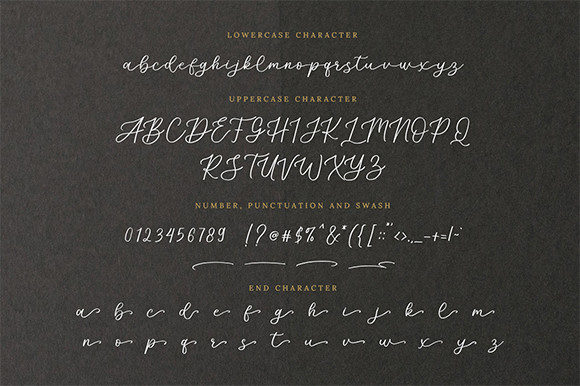 LOWERCASE CHARACTER
abcdefghijklmnopqrstuvwxyz
UPPERCASE CHARACTER
ABCDEFGHIJKLMNOPQ
RSTUVWXYZ
NUMBER, PUNCTUATION AND SWASH
0123456789 !?@#$%^&*({[::"'<>.,_-+=|~
END CHARACTER
a b c d e f g h i j k l m
n o p q r s t u v w x y z